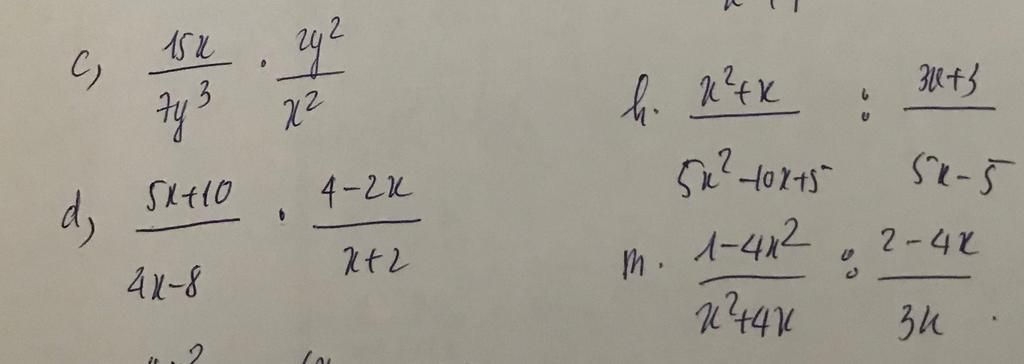 c, 15x/7y³ . 2y²/x²
d, 5x+10/4x-8 . 4-2x/x+2
h. x²+x/5x²-10x+5 : 3x+3/5x-5
m. 1-4x²/x²+4x : 2-4x/3x .